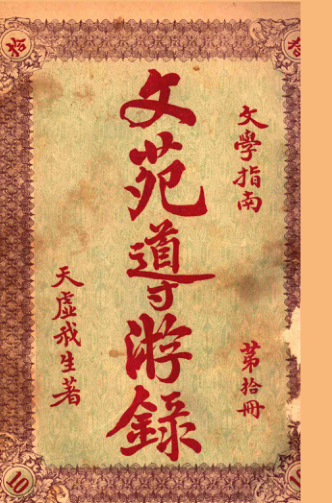 文學指南
第拾冊
文苑導游錄
天虛我生著
拾
拾
10
10